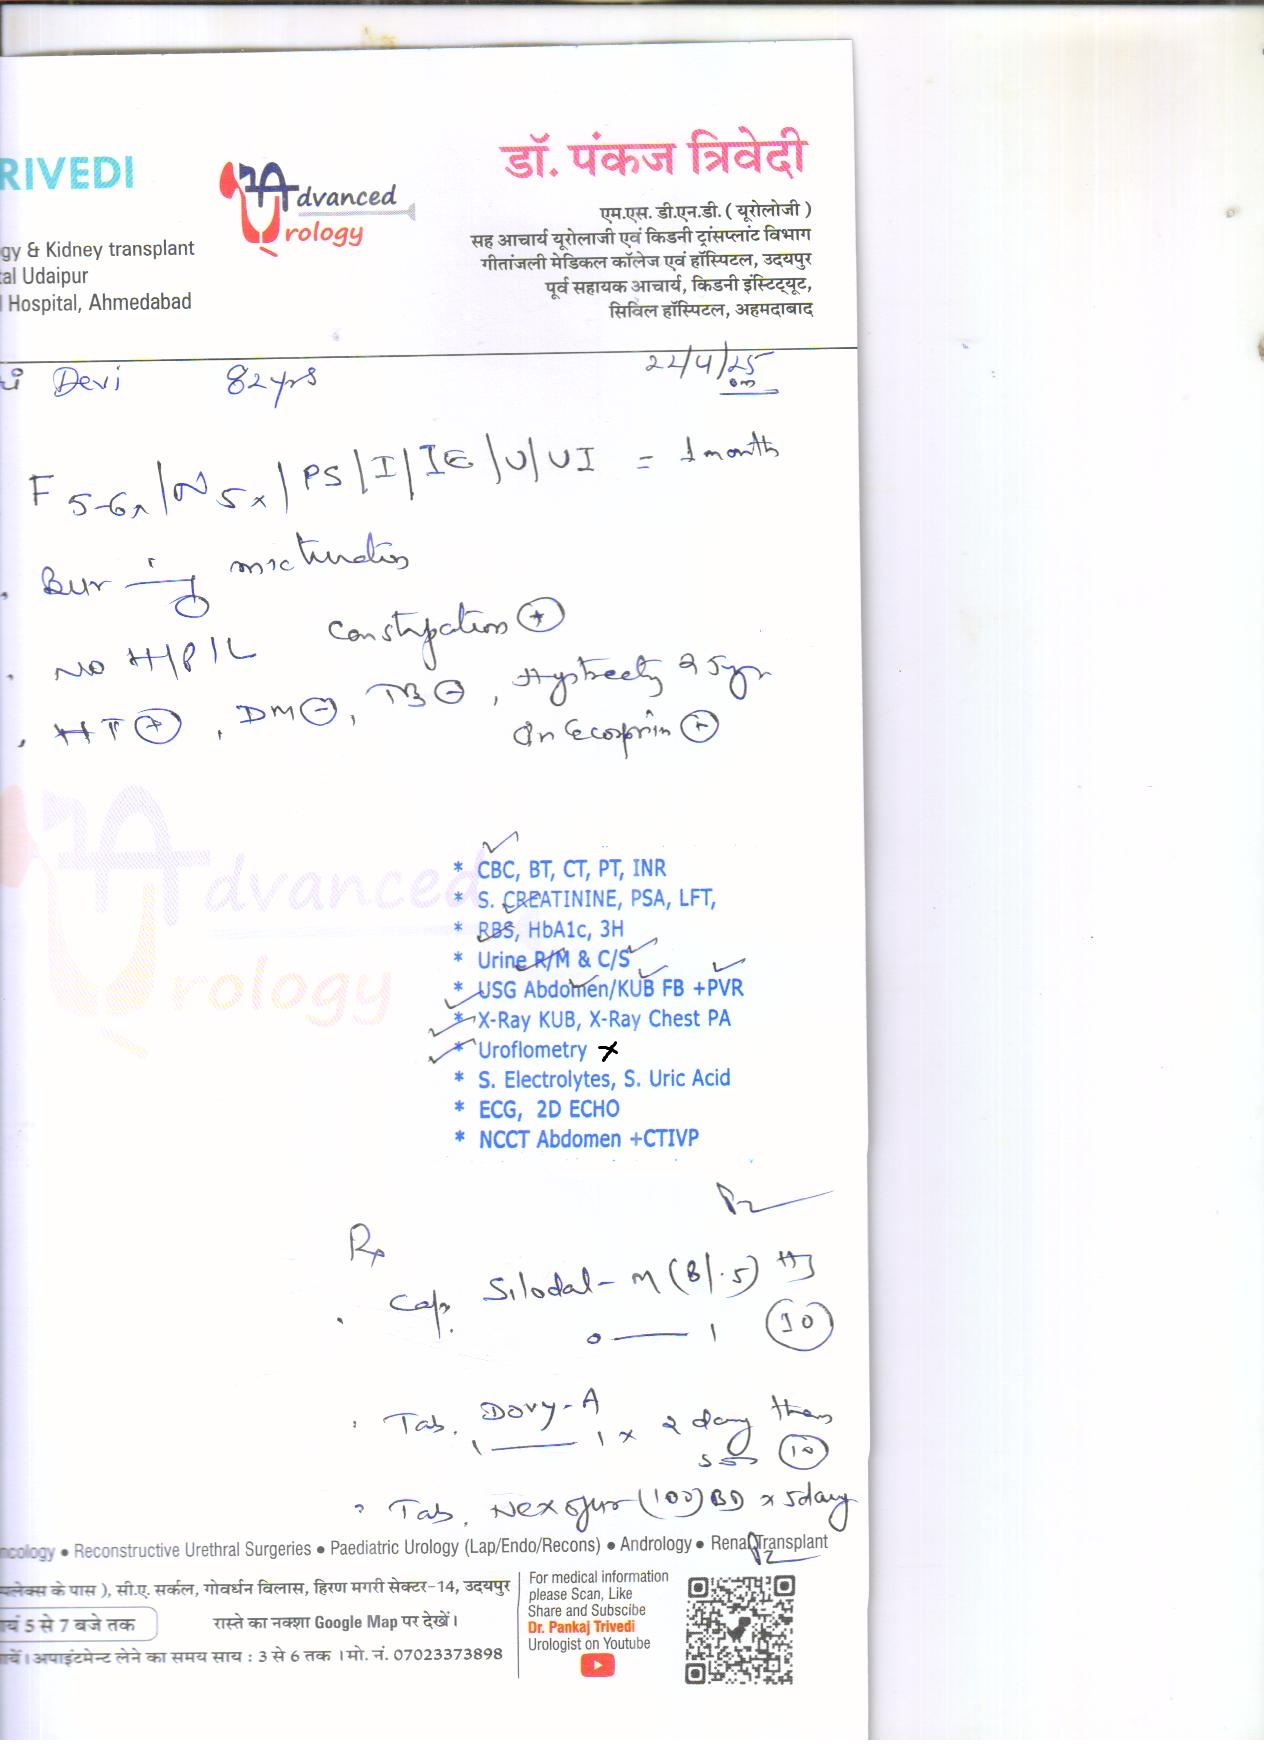 RIVEDI
Advanced
Urology
डॉ. पंकज त्रिवेदी
एम.एस. डी.एन.डी. ( यूरोलोजी )
सह आचार्य यूरोलाजी एवं किडनी ट्रांसप्लांट विभाग
गीतांजली मेडिकल कॉलेज एवं हॉस्पिटल, उदयपुर
पूर्व सहायक आचार्य, किडनी इंस्टिट्यूट,
सिविल हॉस्पिटल, अहमदाबाद
gy & Kidney transplant
tal Udaipur
l Hospital, Ahmedabad
Devi 82yrs 22/4/25
F 5-6x / N 5x / PS / I / IE / U / UI = 1 month
Burning micturation
No H/P/L Constipation +
HT +, DM -, TB -, 25yr
on Ecosprin +
Advanced
Urology
* CBC, BT, CT, PT, INR
* S. CREATININE, PSA, LFT,
* RBS, HbA1c, 3H
* Urine R/M & C/S
* USG Abdomen/KUB FB +PVR
* X-Ray KUB, X-Ray Chest PA
* Uroflometry x
* S. Electrolytes, S. Uric Acid
* ECG, 2D ECHO
* NCCT Abdomen +CTIVP
Rx
Cap. Silodal-M (8/.5) HS
0 — 1 (10)
Tab. Dovy-A
1 — 1 x 2 day then
(10)
Tab. (100) BD x 5day
ncology • Reconstructive Urethral Surgeries • Paediatric Urology (Lap/Endo/Recons) • Andrology • Renal Transplant
प्लेक्स के पास ), सी.ए. सर्कल, गोवर्धन विलास, हिरण मगरी सेक्टर-14, उदयपुर
यं 5 से 7 बजे तक
रास्ते का नक्शा Google Map पर देखें।
यें। अपाइंटमेन्ट लेने का समय साय : 3 से 6 तक । मो. नं. 07023373898
For medical information
please Scan, Like
Share and Subscibe
Dr. Pankaj Trivedi
Urologist on Youtube